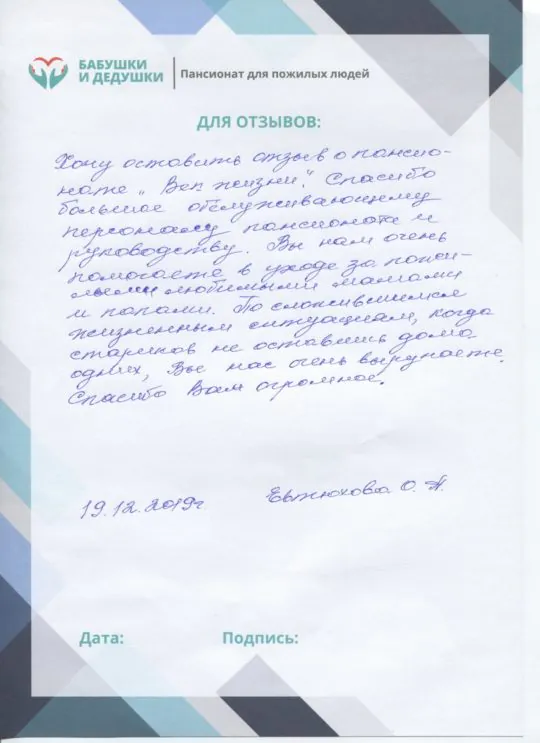 БАБУШКИ
И ДЕДУШКИ
Пансионат для пожилых людей
ДЛЯ ОТЗЫВОВ:
Хочу оставить отзыв о пансио-
нате „Век жизни". Спасибо
большое обслуживающему
персоналу пансионата и
руководству. Вы нам очень
помогаете в уходе за пожи-
лыми любимыми мамами
и папами. По сложившимся
жизненным ситуациям, когда
стариков не оставишь дома
одних, Вы нас очень выручаете.
Спасибо Вам огромное.
19.12.2019г. Евтюхова О. А.
Дата: Подпись: